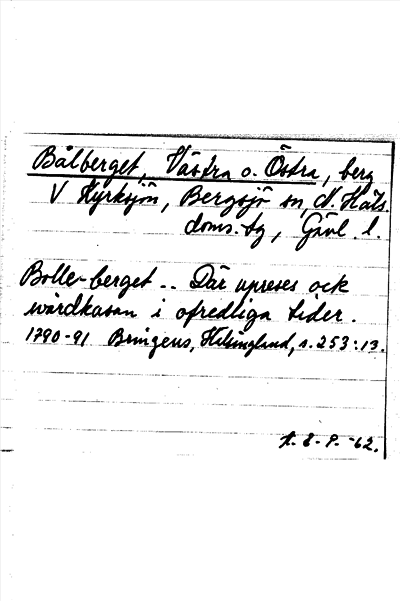 Bålberget, Västra o. Östra, berg
V Kyrksjön, Bergsjö sn, N. Häls.
doms. tg, Gävl. l.
Bolle-berget .. Där upreses ock
wårdkasan i ofredliga tider.
1790-91 Bringéus, Helsingland, s. 253:13.
-62.